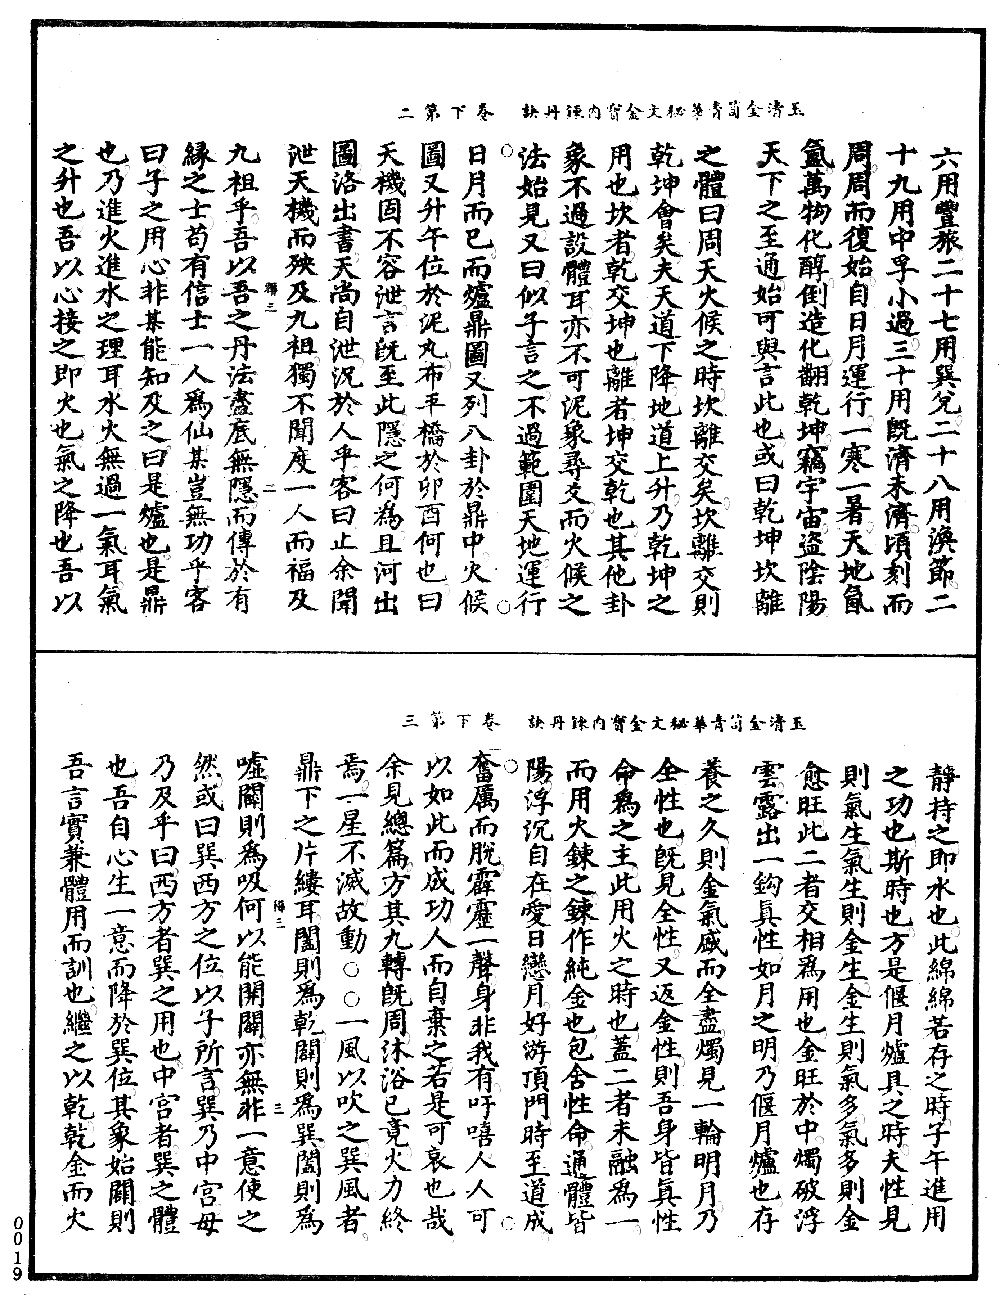 玉清金笥青華秘文金寶內鍊丹訣　卷下第二
六用豐旅二十七用巽兌二十八用渙節二
十九用中孚小過三十用既濟未濟頃刻而
周周而復始自日月運行一寒一暑天地氤
氳萬物化醇倒造化翻乾坤竊宇宙盜陰陽
天下之至通始可與言此也或曰乾坤坎離
之體曰周天火候之時坎離交矣坎離交則
乾坤會矣夫天道下降地道上升乃乾坤之
用也坎者乾交坤也離者坤交乾也其他卦
象不過設體耳亦不可泥象尋爻而火候之
法始見又曰似子言之不過範圍天地運行
日月而已而爐鼎圖又列八卦於鼎中火候
圖又升午位於泥丸布平橋於卯酉何也曰
天機固不容泄言既至此隱之何為且河出
圖洛出書天尚自泄況於人乎客曰止余聞
泄天機而殃及九祖獨不聞度一人而福及
九祖乎吾以吾之丹法盡底無隱而傳於有
緣之士苟有信士一人為仙某豈無功乎客
曰子之用心非某能知及之曰是爐也是鼎
也乃進火進水之理耳水火無過一氣耳氣
之升也吾以心接之即火也氣之降也吾以
玉清金笥青華秘文金寶內鍊丹訣　卷下第三
靜持之即水也此綿綿若存之時子午進用
之功也斯時也方是偃月爐具之時夫性見
則氣生氣生則金生金生則氣多氣多則金
愈旺此二者交相為用也金旺於中燭破浮
雲露出一鈎真性如月之明乃偃月爐也存
養之久則金氣感而全盡燭見一輪明月乃
全性也既見全性又返金性則吾身皆真性
命為之主此用火之時也蓋二者未融為一
而用火鍊之鍊作純金也包含性命通體皆
陽浮沉自在愛日戀月好游頂門時至道成
奮厲而脫霹靂一聲身非我有吁嘻人人可
以如此而成功人而自棄之若是可哀也哉
余見總篇方其九轉既周沐浴已竟火力終
焉一星不滅故動○○一風以吹之巽風者
鼎下之片縷耳闔則為乾闢則為巽闔則為
噓闢則為吸何以能開闢亦無非一意使之
然或曰巽西方之位以子所言巽乃中宮毋
乃及乎曰西方者巽之用也中宮者巽之體
也吾自心生一意而降於巽位其象始闢則
吾言實兼體用而訓也繼之以乾乾金而火
0019